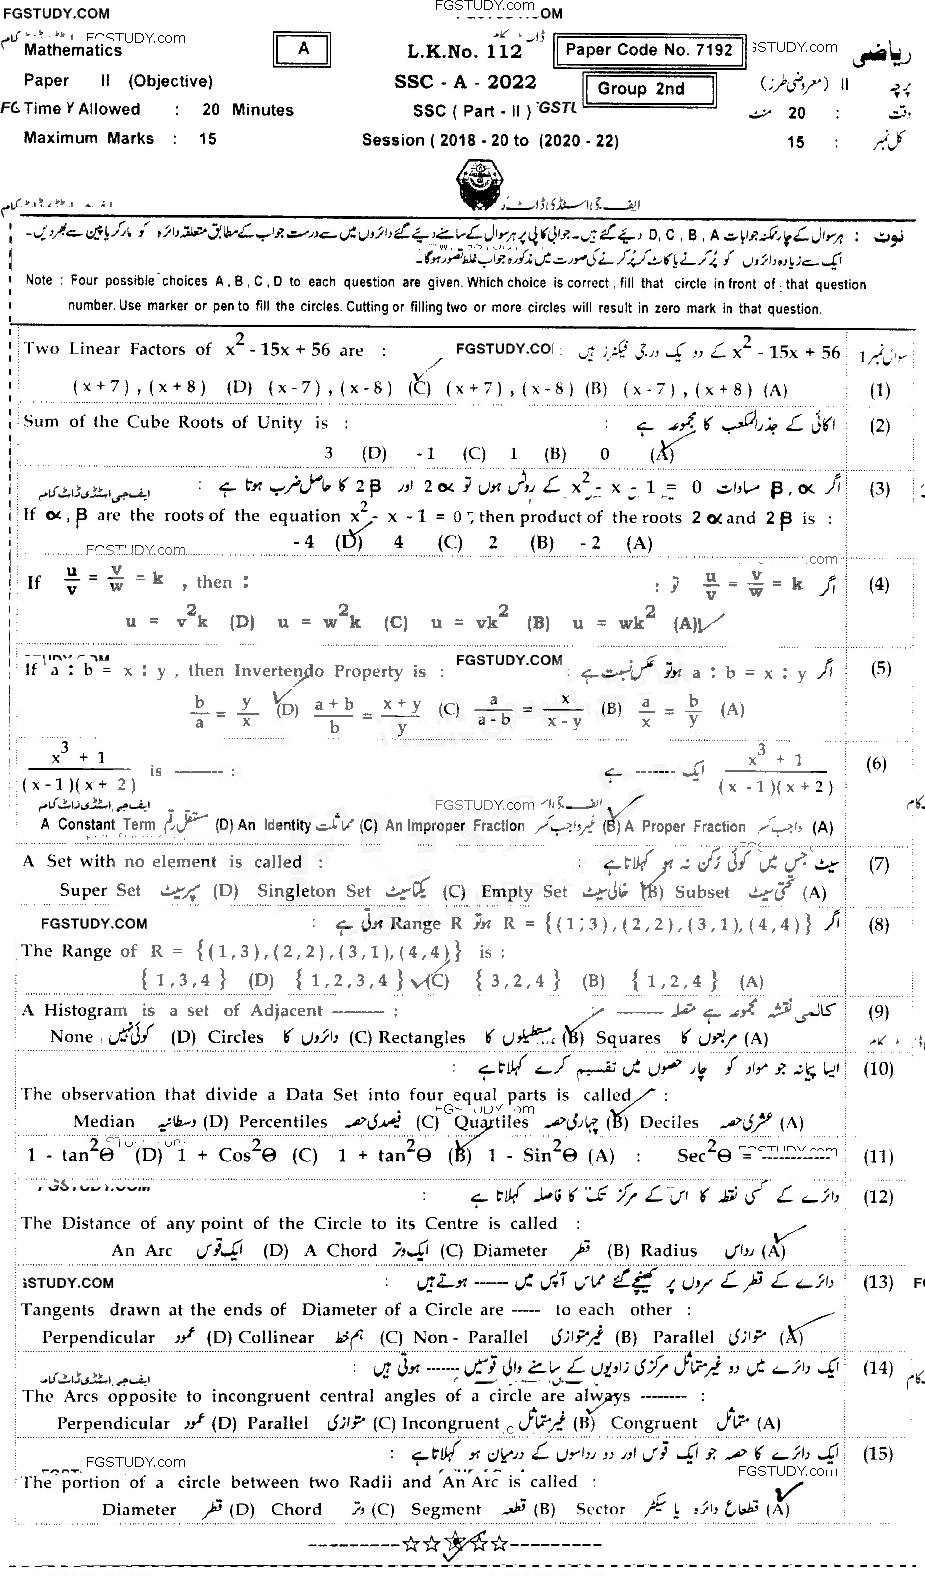 FGSTUDY.COM
FGSTUDY.com
FGSTUDY.com
Mathematics [A] L.K.No. 112 Paper Code No. 7192 ریاضی
Paper II (Objective) SSC - A - 2022 Group 2nd پرچہ II (معروضی طرز)
Time Allowed : 20 Minutes SSC ( Part - II ) وقت : 20 منٹ
Maximum Marks : 15 Session ( 2018 - 20 to (2020 - 22) کل نمبر : 15
نوٹ : ہر سوال کے چار ممکنہ جوابات D, C, B, A دیئے گئے ہیں۔ جوابی کاپی پر ہر سوال کے سامنے دیئے گئے دائروں میں سے درست جواب کے مطابق متعلقہ دائرہ کو مارکر یا پین سے بھر دیں۔
ایک سے زیادہ دائروں کو پُر کرنے یا کاٹ کر پُر کرنے کی صورت میں مذکورہ جواب غلط تصور ہوگا۔
Note : Four possible choices A, B, C, D to each question are given. Which choice is correct, fill that circle in front of that question
number. Use marker or pen to fill the circles. Cutting or filling two or more circles will result in zero mark in that question.
Two Linear Factors of x² - 15x + 56 are : x² - 15x + 56 کے دو یک درجی فیکٹرز ہیں سوال نمبر 1
(x+7),(x+8) (D) (x-7),(x-8) (C) (x+7),(x-8) (B) (x-7),(x+8) (A) (1)
Sum of the Cube Roots of Unity is : اکائی کے جذرالمکعب کا مجموعہ ہے : (2)
3 (D) -1 (C) 1 (B) 0 (A)
اگر α, β مساوات x² - x - 1 = 0 کے روٹس ہوں تو 2α اور 2β کا حاصل ضرب ہوتا ہے : (3)
If α, β are the roots of the equation x² - x - 1 = 0, then product of the roots 2α and 2β is :
-4 (D) 4 (C) 2 (B) -2 (A)
FGSTUDY.com
If u/v = v/w = k , then : اگر u/v = v/w = k تو : (4)
u = v²k (D) u = w²k (C) u = vk² (B) u = wk² (A)
FGSTUDY.COM
If a : b = x : y , then Invertendo Property is : اگر a : b = x : y ہو تو عکس نسبت ہے (5)
b/a = y/x (D) (a+b)/b = (x+y)/y (C) a/(a-b) = x/(x-y) (B) a/x = b/y (A)
(x³ + 1)/((x-1)(x+2)) is ------- : (x³ + 1)/((x-1)(x+2)) ایک ------ ہے (6)
FGSTUDY.com
A Constant Term مستقل رقم (D) An Identity مماثلت (C) An Improper Fraction غیر واجب کسر (B) A Proper Fraction واجب کسر (A)
A Set with no element is called : سیٹ جس میں کوئی رکن نہ ہو کہلاتا ہے : (7)
Super Set سپر سیٹ (D) Singleton Set یکتا سیٹ (C) Empty Set خالی سیٹ (B) Subset تحتی سیٹ (A)
FGSTUDY.COM اگر R = {(1,3),(2,2),(3,1),(4,4)} ہو تو Range R ہوتی ہے : (8)
The Range of R = {(1,3),(2,2),(3,1),(4,4)} is :
{1,3,4} (D) {1,2,3,4} (C) {3,2,4} (B) {1,2,4} (A)
A Histogram is a set of Adjacent -------- : کالمی نقشہ مجموعہ ہے متصلہ ------- (9)
None کوئی نہیں (D) Circles دائروں کا (C) Rectangles مستطیلوں کا (B) Squares مربعوں کا (A)
ایسا پیمانہ جو مواد کو چار حصوں میں تقسیم کرے کہلاتا ہے : (10)
The observation that divide a Data Set into four equal parts is called :
Median وسطانیہ (D) Percentiles فیصدی حصہ (C) Quartiles چہارمی حصہ (B) Deciles عشری حصہ (A)
1 - tan²θ (D) 1 + Cos²θ (C) 1 + tan²θ (B) 1 - Sin²θ (A) : Sec²θ = ------------ (11)
دائرے کے کسی نقطہ کا اس کے مرکز تک کا فاصلہ کہلاتا ہے : (12)
The Distance of any point of the Circle to its Centre is called :
An Arc ایک قوس (D) A Chord ایک وتر (C) Diameter قطر (B) Radius رداس (A)
دائرے کے قطر کے سروں پر کھینچے گئے مماس آپس میں ------ ہوتے ہیں : (13)
Tangents drawn at the ends of Diameter of a Circle are ----- to each other :
Perpendicular عمود (D) Collinear ہم خط (C) Non - Parallel غیر متوازی (B) Parallel متوازی (A)
ایک دائرے میں دو غیر متماثل مرکزی زاویوں کے سامنے والی قوسیں ------ ہوتی ہیں : (14)
The Arcs opposite to incongruent central angles of a circle are always -------- :
Perpendicular عمود (D) Parallel متوازی (C) Incongruent غیر متماثل (B) Congruent متماثل (A)
ایک دائرے کا حصہ جو ایک قوس اور دو رداسوں کے درمیان ہو کہلاتا ہے : (15)
FGSTUDY.com FGSTUDY.com
The portion of a circle between two Radii and An Arc is called :
Diameter قطر (D) Chord وتر (C) Segment قطعہ (B) Sector قطاع دائرہ یا سیکٹر (A)